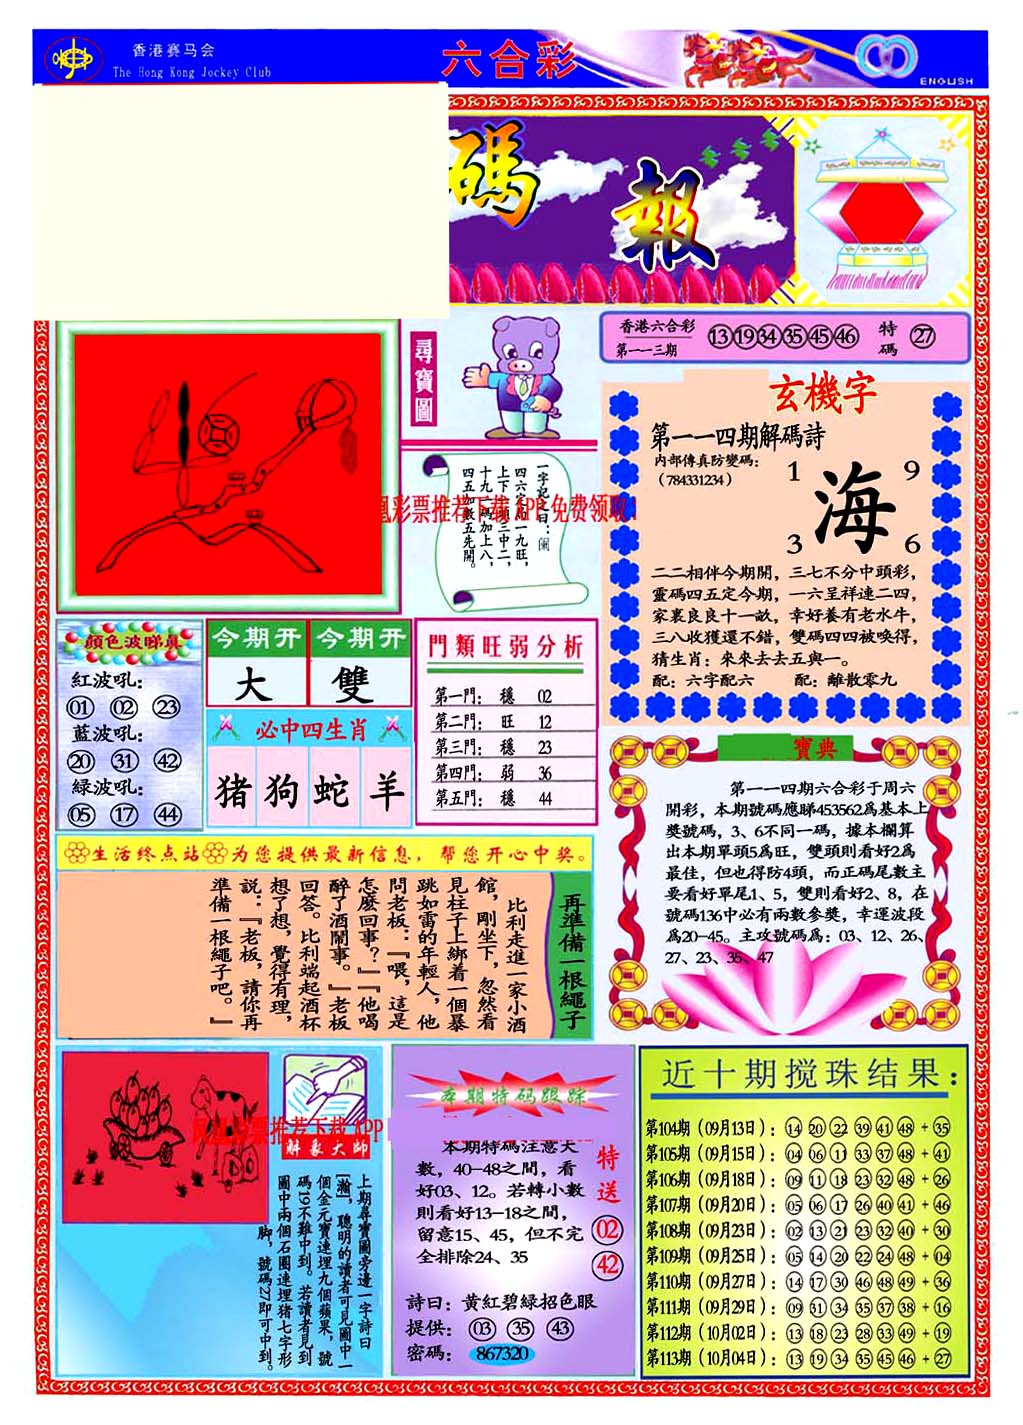 香港赛马会
The Hong Kong Jockey Club
六合彩
ENGLISH
碼報
尋寶圖
香港六合彩
第一一三期
13 19 34 35 45 46
特碼
27
一字記之曰：
四六定局一九旺，
上下二頭三中二，
十九一碼加上八，
四五加數五先開。
玄機字
第一一四期解碼詩
内部傳真防變碼：
（784331234）
1 9
海
3 6
二二相伴今期開，三七不分中頭彩，
靈碼四五定今期，一六呈祥連二四，
家裏良良十一畝，幸好養有老水牛，
三八收獲還不錯，雙碼四四被喚得，
猜生肖：來來去去五與一。
配：六字配六 配：離散零九
顔色波睇真
紅波吼：
01 02 23
藍波吼：
20 31 42
綠波吼：
05 17 44
今期开 今期开
大 雙
必中四生肖
猪 狗 蛇 羊
門類旺弱分析
第一門： 穩 02
第二門： 旺 12
第三門： 穩 23
第四門： 弱 36
第五門： 穩 44
寶典
第一一四期六合彩于周六
開彩，本期號碼應睇453562爲基本上
獎號碼，3、6不同一碼，據本欄算
出本期單頭5爲旺，雙頭則看好2爲
最佳，但也得防4頭，而正碼尾數主
要看好單尾1、5，雙則看好2、8，在
號碼136中必有兩數參獎，幸運波段
爲20-45。主攻號碼爲：03、12、26、
27、23、35、47
生活终点站 为您提供最新信息，帮您开心中奖。
再準備一根繩子
比利走進一家小酒
館，剛坐下，忽然看
見柱子上綁着一個暴
跳如雷的年輕人，他
問老板：『喂，這是
怎麽回事？』『他喝
醉了酒鬧事。』老板
回答。比利端起酒杯
想了想，覺得有理，
説：『老板，請你再
準備一根繩子吧。』
解象大師
上期尋寶圖旁邊一字詩曰
[瀚]，聰明的讀者可見圖中一
個金元寶連埋九個蘋果，號
碼19不難中到。若讀者見到
圖中兩個石圈連埋猪七字形
脚，號碼27即可中到。
本期特码跟踪
本期特碼注意大
數，40-48之間，看
好03、12。若轉小數
則看好13-18之間，
留意15、45，但不完
全排除24、35
特送
02
42
詩曰：黄紅碧綠招色眼
提供：03 35 43
密碼：867320
近十期搅珠结果：
第104期（09月13日）：14 20 22 39 41 48 + 35
第105期（09月15日）：04 06 11 33 37 48 + 41
第106期（09月18日）：09 11 18 23 32 48 + 26
第107期（09月20日）：05 06 17 26 40 41 + 46
第108期（09月23日）：02 13 21 23 32 40 + 30
第109期（09月25日）：05 14 20 22 24 48 + 04
第110期（09月27日）：14 17 30 46 48 49 + 36
第111期（09月29日）：09 31 34 35 37 38 + 16
第112期（10月02日）：13 18 23 28 33 49 + 19
第113期（10月04日）：13 19 34 35 45 46 + 27
凰彩票推荐下载 APP 免费领取
彩票推荐下载 APP